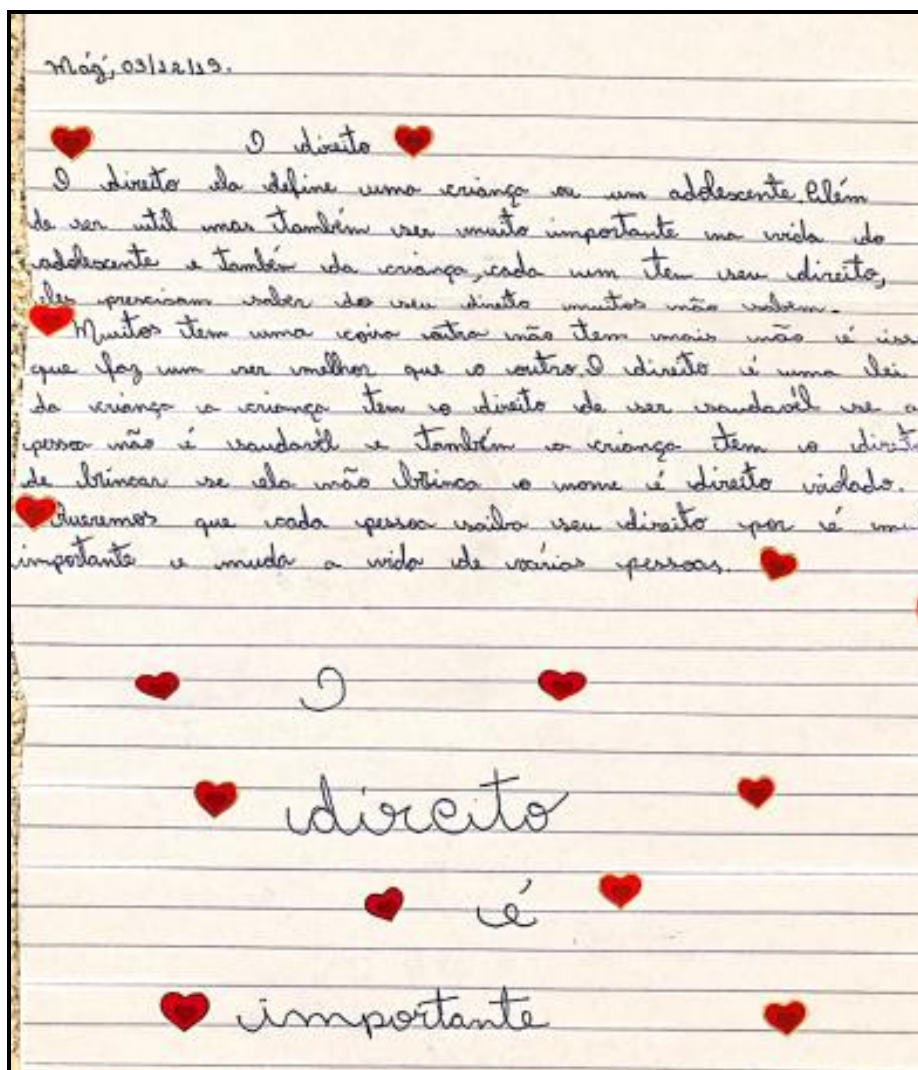 Mág, 03/12/19.
O direito
O direito ela define uma criança ou um adolescente. Além
de ser util mas também ser muito importante na vida do
adolescente e também da criança, cada um tem seu direito,
eles prescisam saber do seu direito muitos não sabem.
Muitos tem uma coisa outra não tem mais não é isso
que faz um ser melhor que o outro. O direito é uma lei
da criança a criança tem o direito de ser saudavél se a
pessoa não é saudavél e também a criança tem o direito
de brincar se ela não brinca o nome é direito violado.
Queremos que cada pessoa saiba seu direito por é
importante e muda a vida de várias pessoas.
O
direito
é
importante